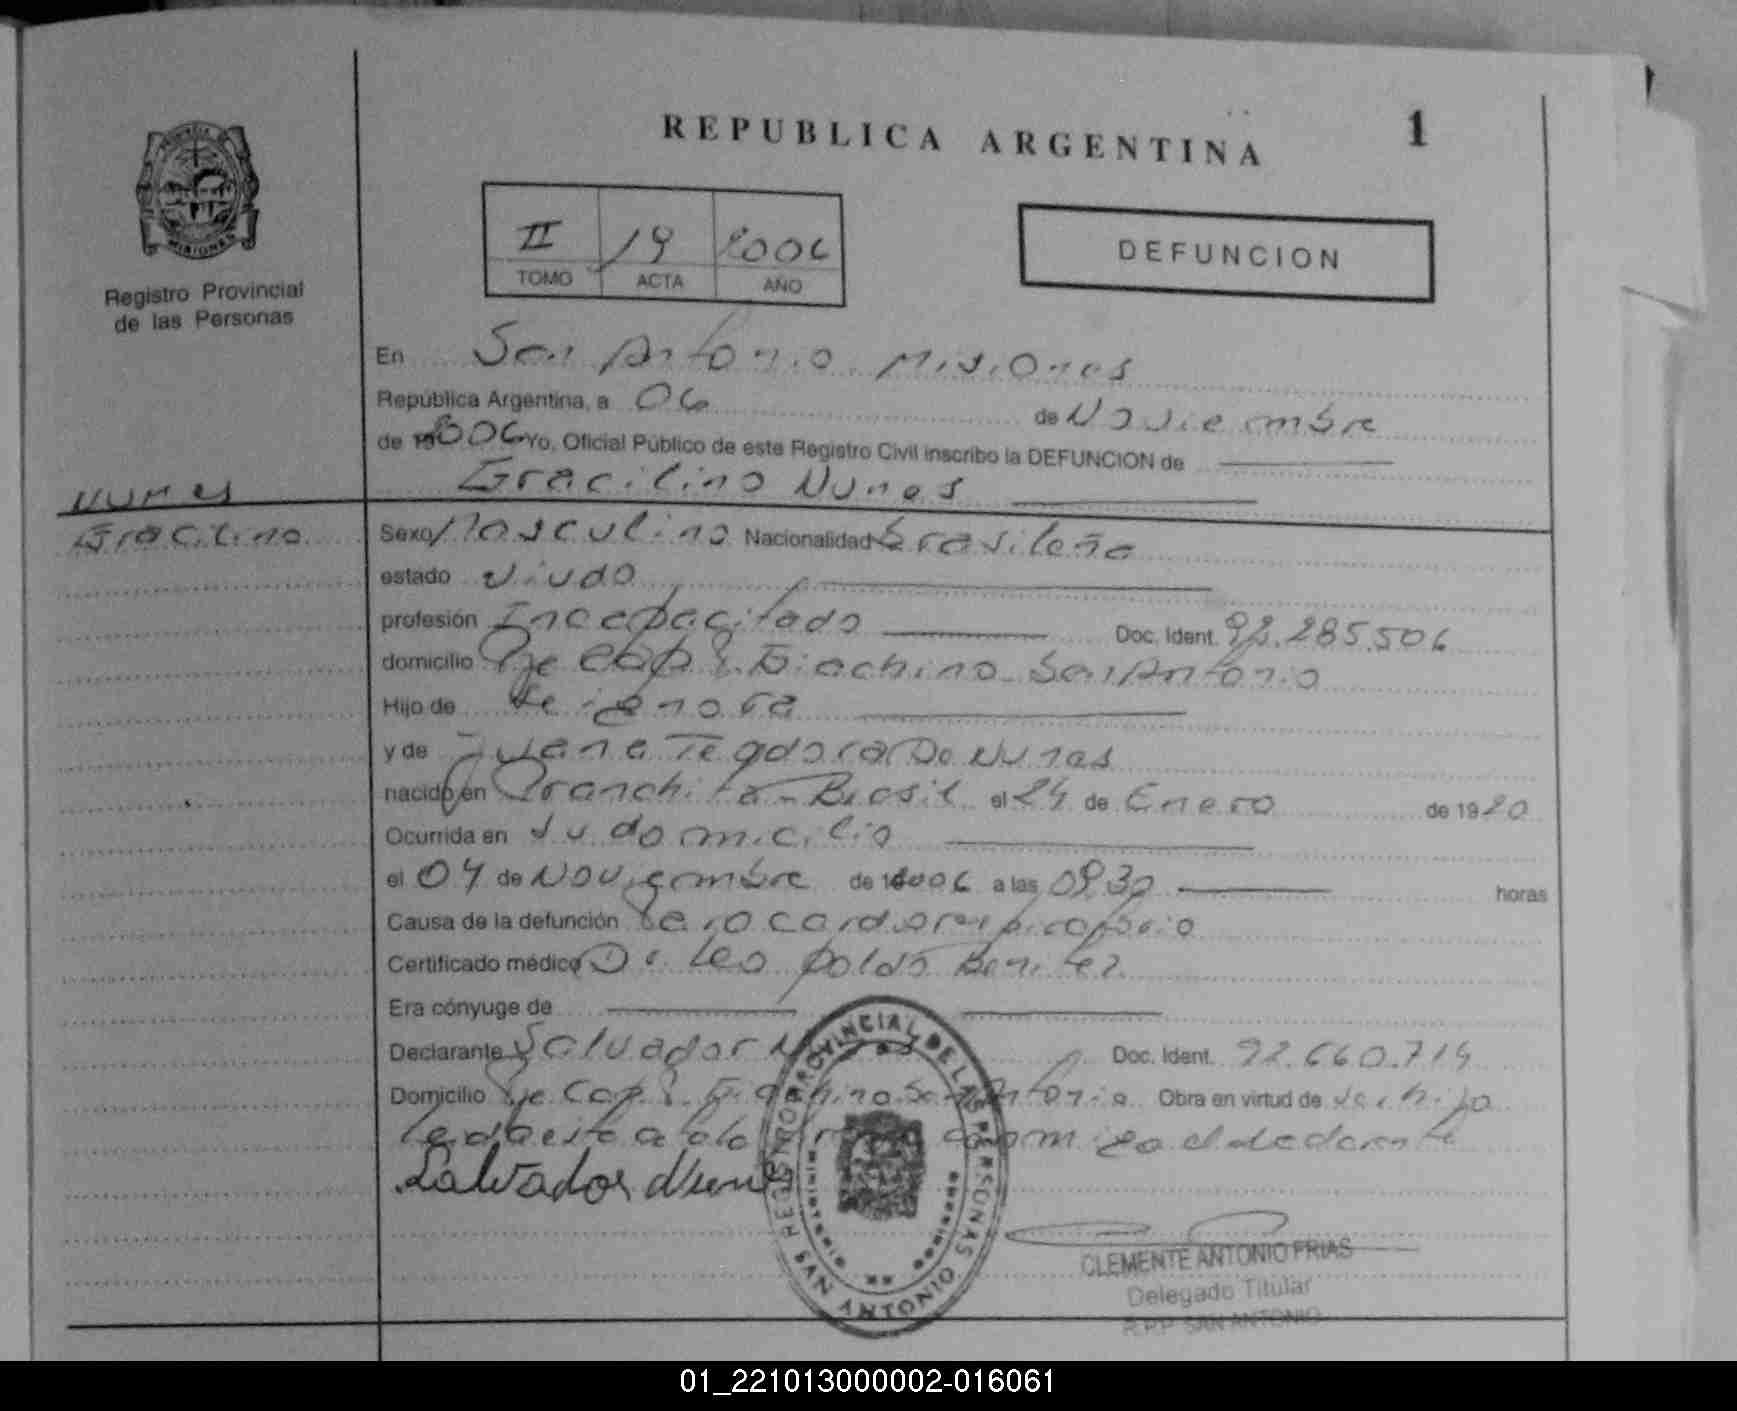 REPUBLICA ARGENTINA
1
MISIONES
Registro Provincial
de las Personas
II 19 2006
TOMO ACTA AÑO
DEFUNCION
En San Antonio Misiones
República Argentina, a 06 de Noviembre
de 2006 Yo, Oficial Público de este Registro Civil inscribo la DEFUNCION de
Gracilino Nunes
Nunes
Gracilino
Sexo Masculino Nacionalidad Brasileña
estado Viudo
profesión Incapacitado Doc. Ident. 92.285.506
domicilio Pje Cap Giachino San Antonio
Hijo de
y de Juana Teodora Do Nunes
nacido en Pranchita - Brasil el 24 de Enero de 1920
Ocurrida en su domicilio
el 04 de Noviembre de 2006 a las 09.30 horas
Causa de la defunción Paro cardiorrespiratorio
Certificado médico Dr Leopoldo Benitez
Era cónyuge de
Declarante Salvador Doc. Ident. 92.660.719
Domicilio Pje Cap Giachino San Antonio Obra en virtud de ser hijo
Leida esta acta firma conmigo el declarante
Salvador Nunes
REGISTRO PROVINCIAL DE LAS PERSONAS
SAN ANTONIO
CLEMENTE ANTONIO FRIAS
Delegado Titular
R.P.P. SAN ANTONIO
01_221013000002-016061